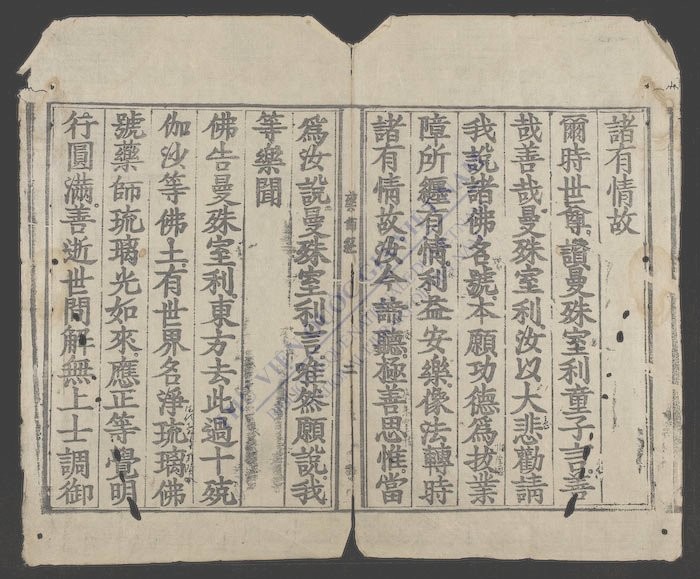 諸有情故
爾時世尊讚曼殊室利童子言善
哉善哉曼殊室利汝以大悲勸請
我說諸佛名號本願功德爲拔業
障所纏有情利益安樂像法轉時
諸有情故汝今諦聽極善思惟當
藥師経
爲汝說曼殊室利言唯然願說我
等樂聞
佛告曼殊室利東方去此過十殑
伽沙等佛土有世界名淨琉璃佛
號藥師琉璃光如來應正等覺明
行圓滿善逝世間解無上士調御